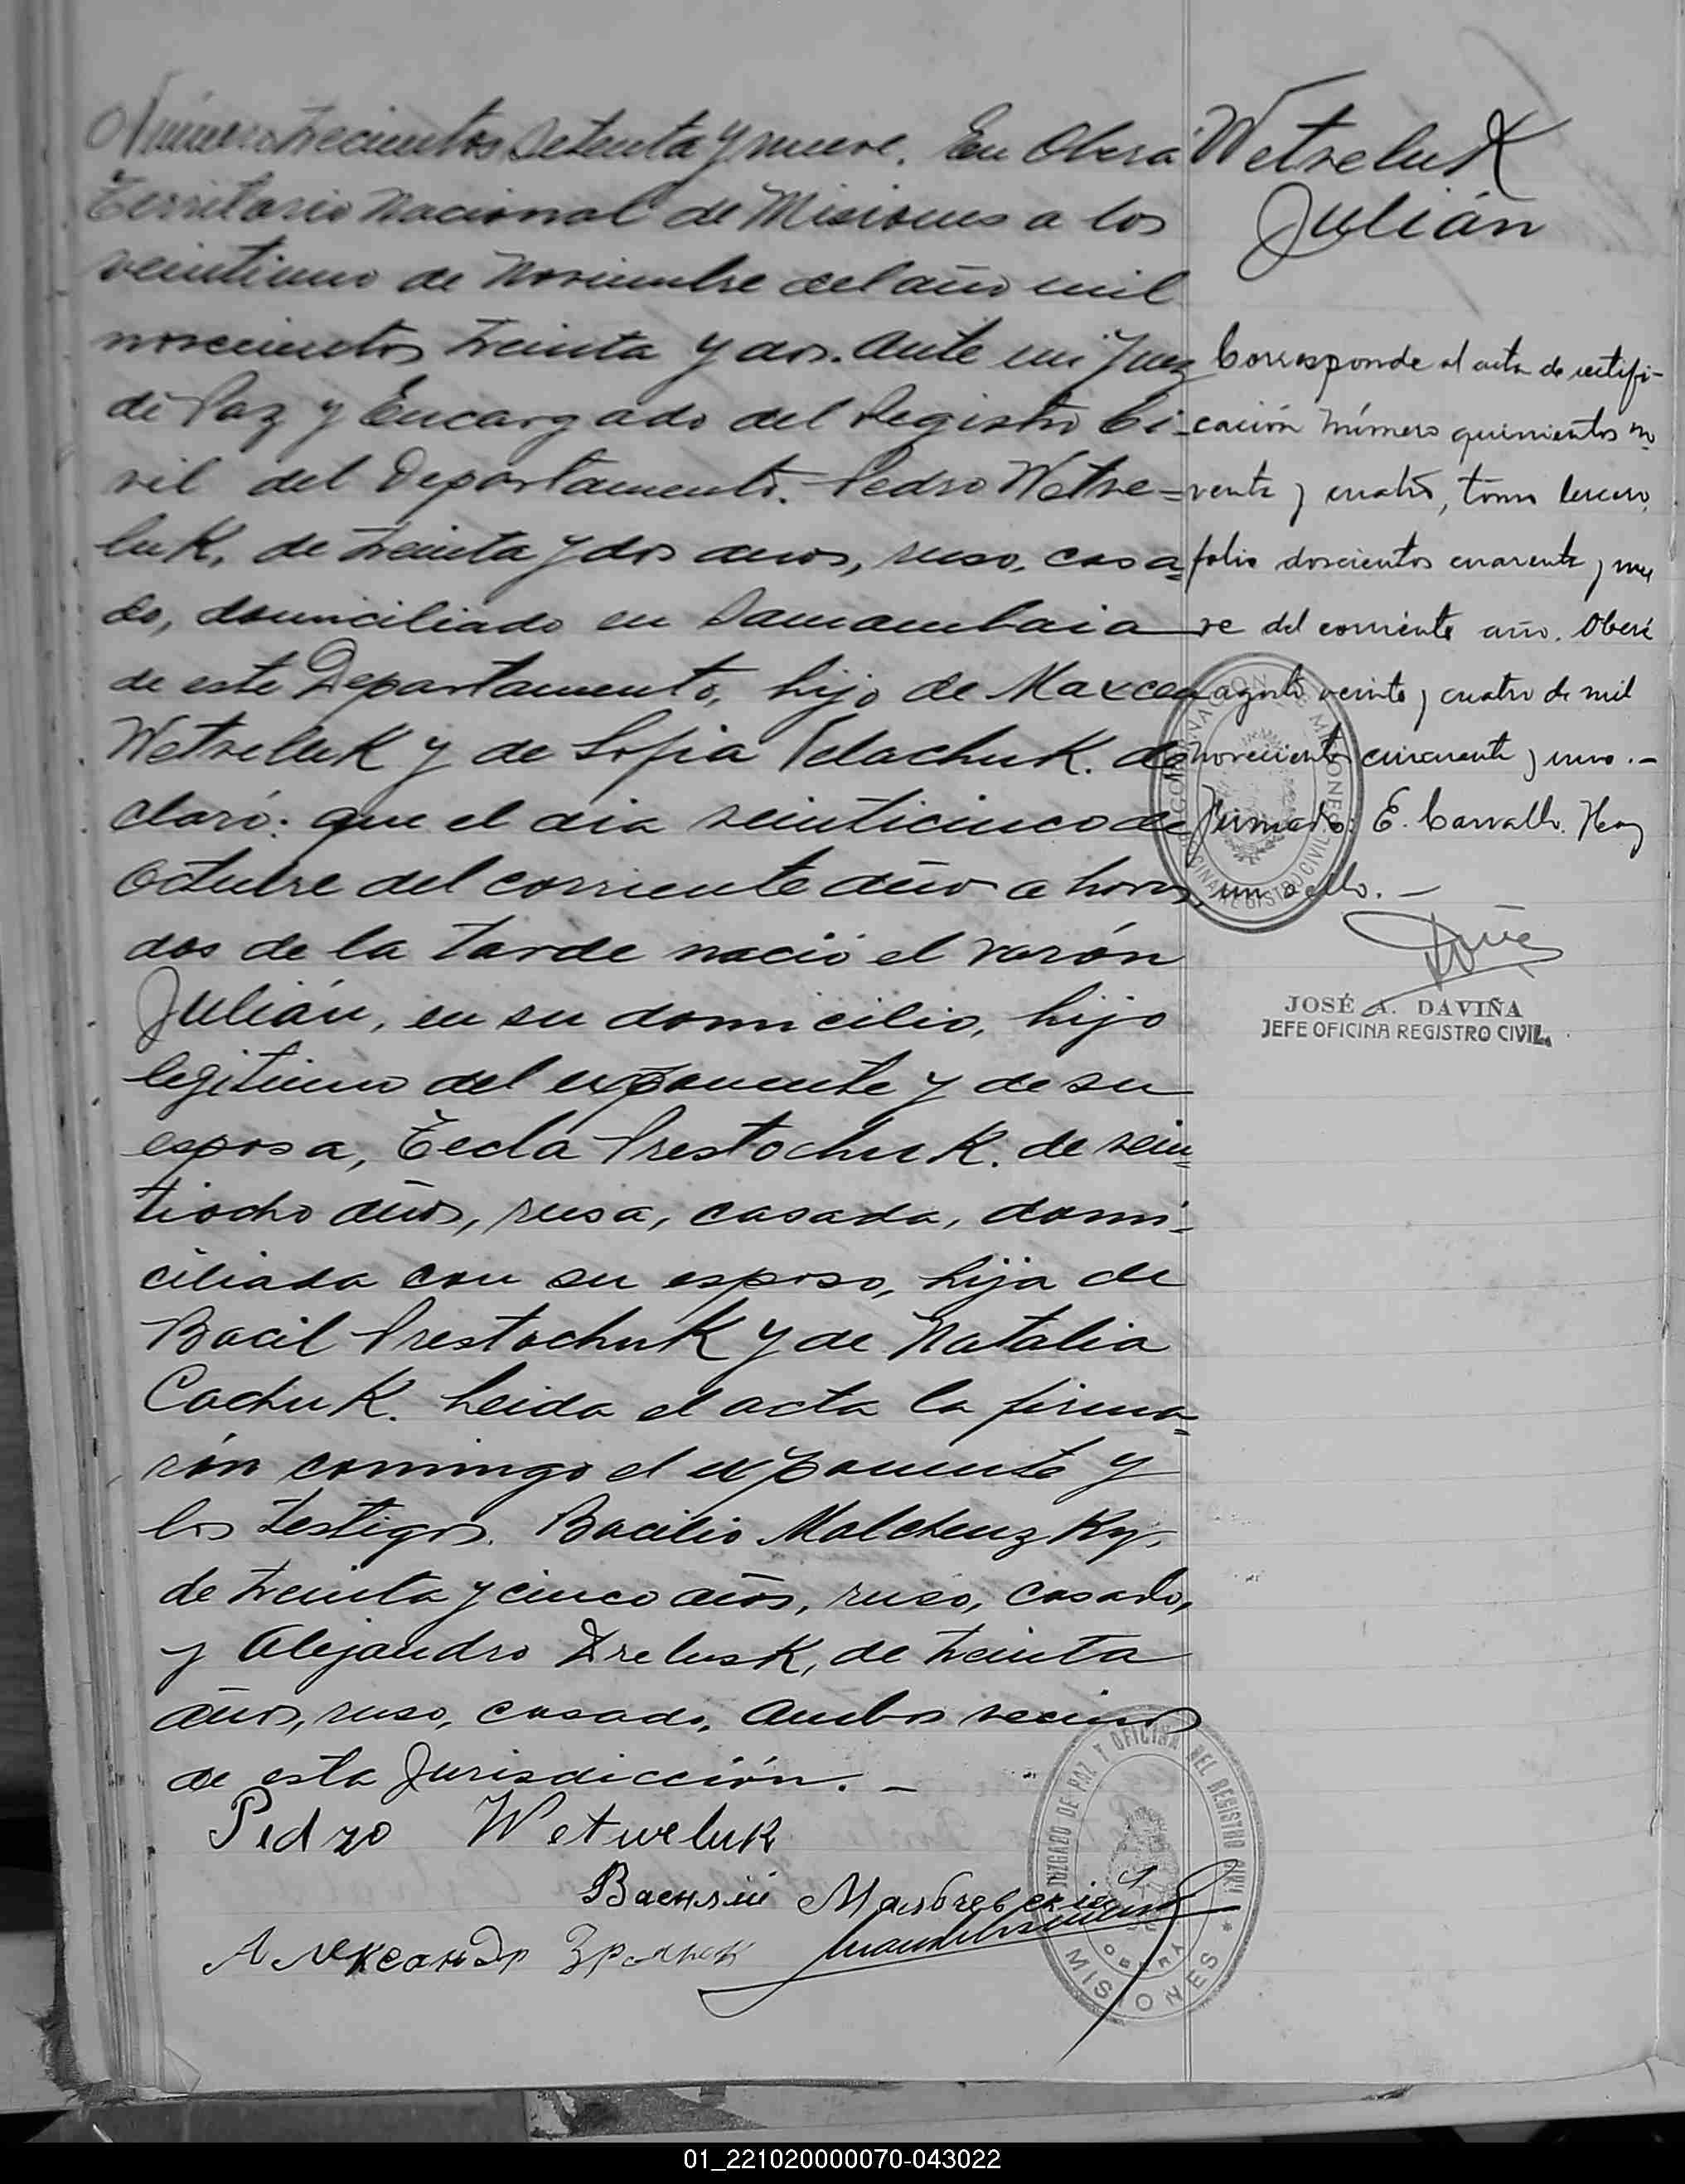 Número trecientos setenta y nueve. En Oberá
Territorio Nacional de Misiones a los
veintiuno de Noviembre del año mil
novecientos treinta y dos. Ante mi Juez
de Paz y Encargado del Registro Ci-
vil del Departamento. Pedro Wetwe=
luk, de treinta y dos años, ruso, casa=
do, domiciliado en Samambaia
de este Departamento, hijo de Maxcen
Wetweluk y de Sofia Velachuk. de
claró: que el dia veinticinco de
Octubre del corriente año a horas
dos de la tarde nació el varón
Julián, en su domicilio, hijo
legitimo del exponente y de su
esposa, Tecla Prestochuk. de vein=
tiocho años, rusa, casada, domi=
ciliada con su esposo, hija de
Bacil Prestochuk y de Natalia
Cachuk. Leida el acta la firma=
rón conmigo el exponente y
los testigos. Bacilio Malchenzky,
de treinta y cinco años, ruso, casado,
y Alejandro Drelusk, de treinta
años, ruso, casado, ambos vecinos
de esta Jurisdicción. _
Pedro Wetweluk
Василий
Александр
Wetweluk
Julián
Corresponde al acta de rectifi-
cación número quinientos no
venta y cuatro, tomo tercero,
folio doscientos cuarenta y nue
ve del corriente año. Oberá
agosto veinte y cuatro de mil
novecientos cincuenta y uno.-
Firmado: E. Carvallo. Hay
un sello. _
JOSÉ A. DAVIÑA
JEFE OFICINA REGISTRO CIVIL.
GOBERNACION DE MISIONES
OFICINA REGISTRO CIVIL
JUZGADO DE PAZ Y OFICINA DEL REGISTRO CIVIL
OBERA
MISIONES
01_221020000070-043022